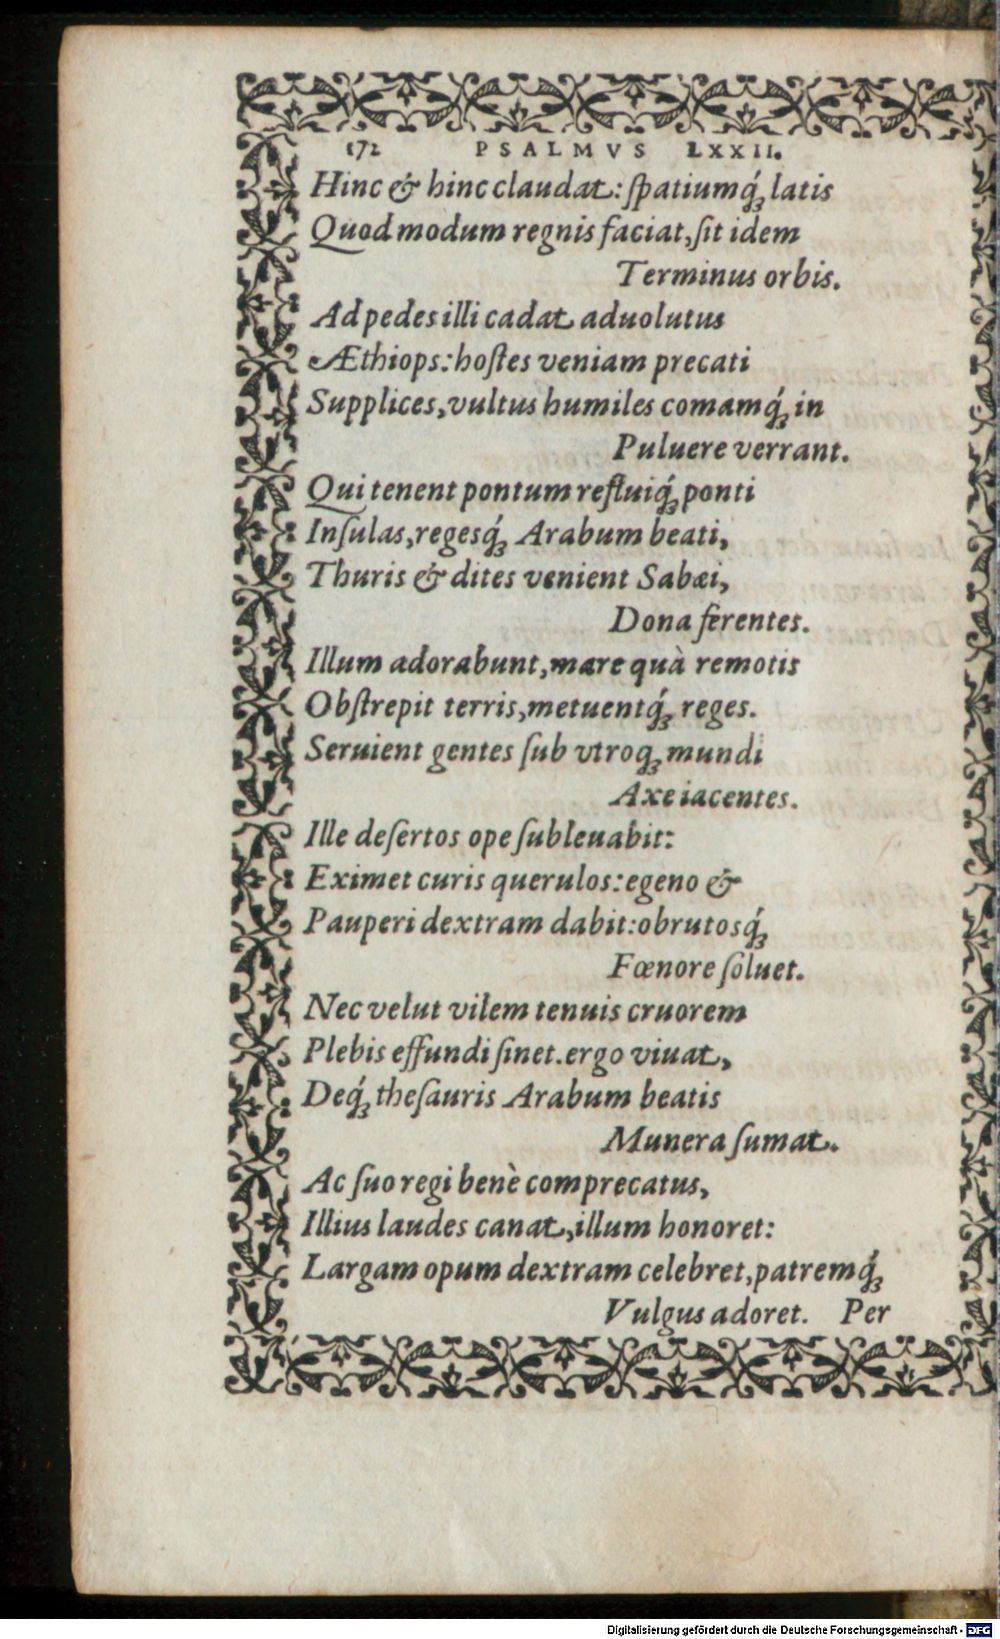 172 PSALMVS LXXII.
Hinc & hinc claudat: ſpatiumq́ꝫ latis
Quod modum regnis faciat, ſit idem
Terminus orbis.
Ad pedes illi cadat aduolutus
Æthiops: hoſtes veniam precati
Supplices, vultus humiles comamq́ꝫ in
Puluere verrant.
Qui tenent pontum refluiq́ꝫ ponti
Inſulas, regesq́ꝫ Arabum beati,
Thuris & dites venient Sabæi,
Dona ferentes.
Illum adorabunt, mare quà remotis
Obſtrepit terris, metuentq́ꝫ reges.
Seruient gentes ſub vtroqꝫ mundi
Axe iacentes.
Ille deſertos ope ſubleuabit:
Eximet curis querulos: egeno &
Pauperi dextram dabit: obrutosq́ꝫ
Fœnore ſoluet.
Nec velut vilem tenuis cruorem
Plebis effundi ſinet. ergo viuat,
Deq́ꝫ theſauris Arabum beatis
Munera ſumat.
Ac ſuo regi benè comprecatus,
Illius laudes canat, illum honoret:
Largam opum dextram celebret, patremq́ꝫ
Vulgus adoret. Per
Digitalisierung gefördert durch die Deutsche Forschungsgemeinschaft - DFG